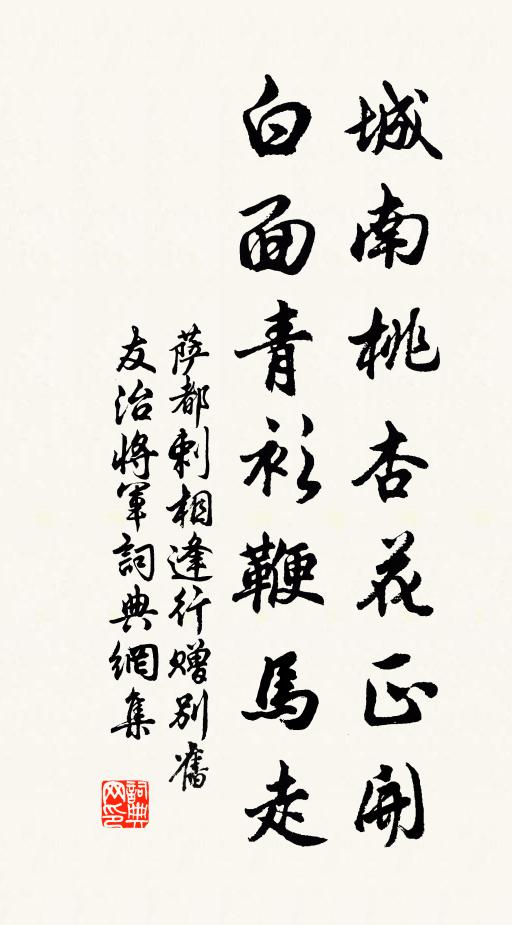 城南桃杏花正開
白面青衫鞭馬走
薩都剌相逢行贈別舊
友治將軍詞典網集
詞典網印